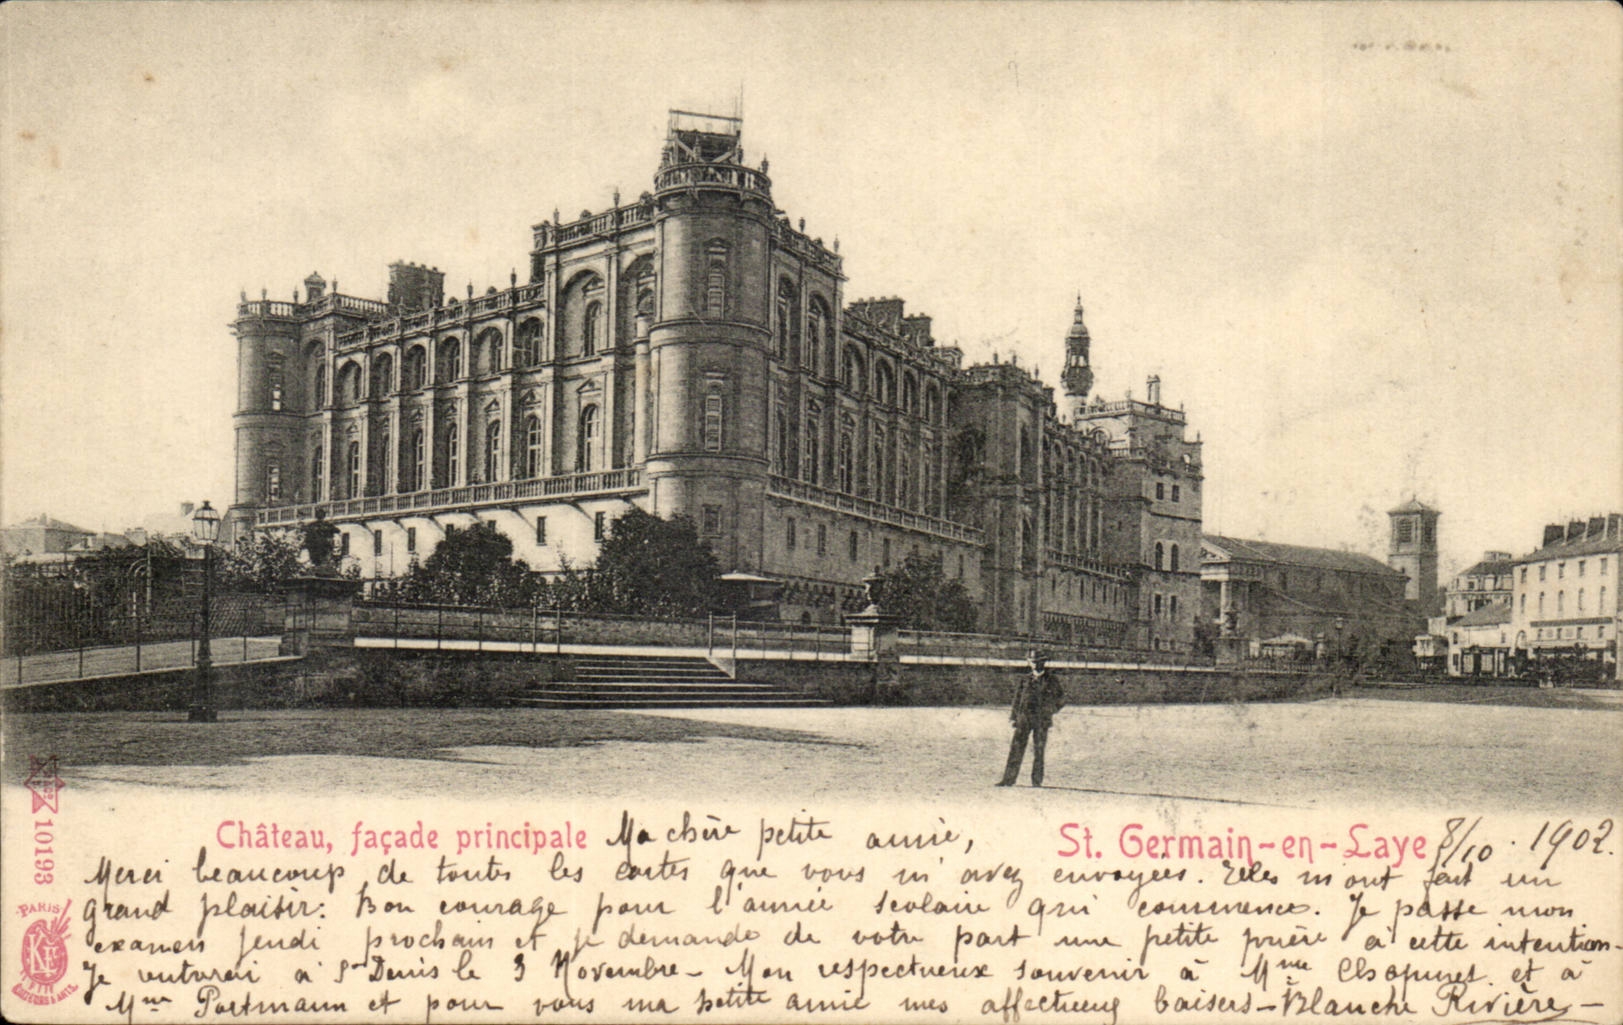 Château, façade principale Ma chère petite amie, St. Germain-en-Laye 8/10. 1902.
Merci beaucoup de toutes les cartes que vous m'avez envoyées. Elles m'ont fait un
grand plaisir. Bon courage pour l'année scolaire qui commence. Je passe mon
examen jeudi prochain et je demande de votre part une petite prière à cette intention-
Je rentrerai à St Denis le 3 Novembre- Mon respectueux souvenir à Mme et à
Mme Portmann et pour vous ma petite amie mes affectueux baisers-Blanche Rivière-
10193
PARIS
KF
EDITEURS D'ARTS